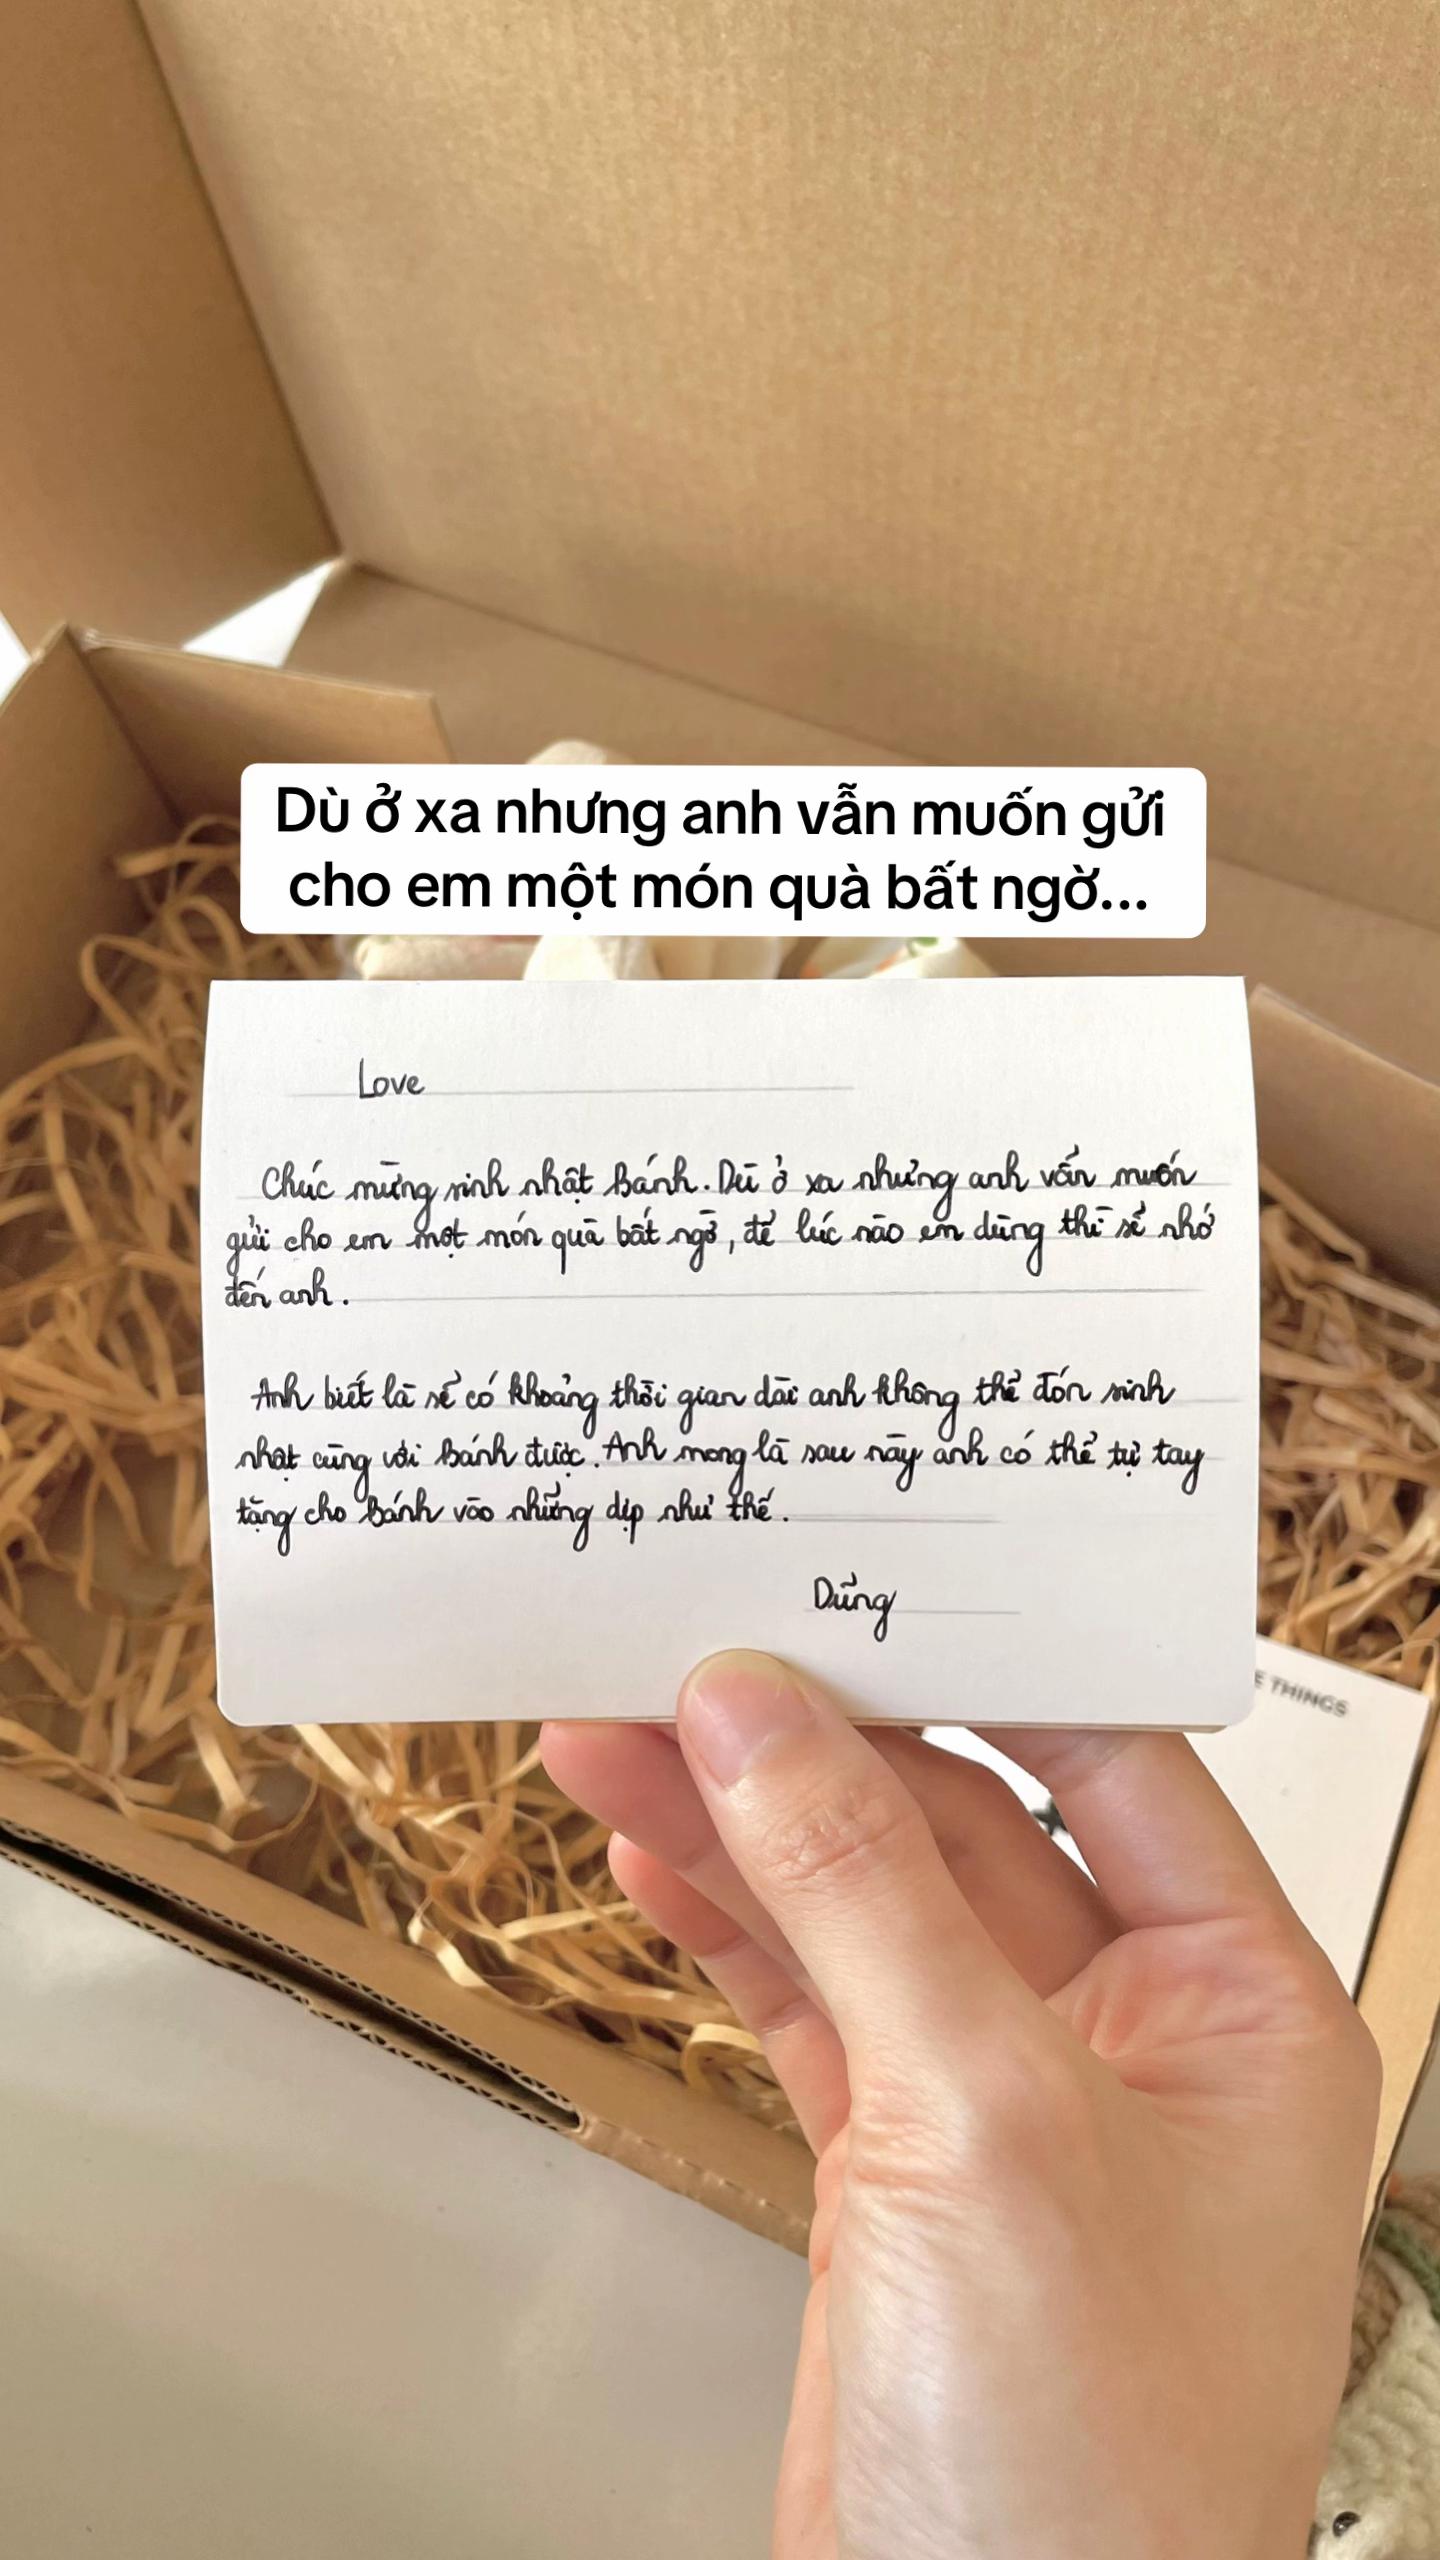 Dù ở xa nhưng anh vẫn muốn gửi
cho em một món quà bất ngờ...
Love
Chúc mừng sinh nhật Bánh. Dù ở xa nhưng anh vẫn muốn
gửi cho em một món quà bất ngờ, để lúc nào em dùng thì sẽ nhớ
đến anh.
Anh biết là sẽ có khoảng thời gian dài anh không thể đón sinh
nhật cùng với Bánh được. Anh mong là sau này anh có thể tự tay
tặng cho Bánh vào những dịp như thế.
Dũng
THINGS